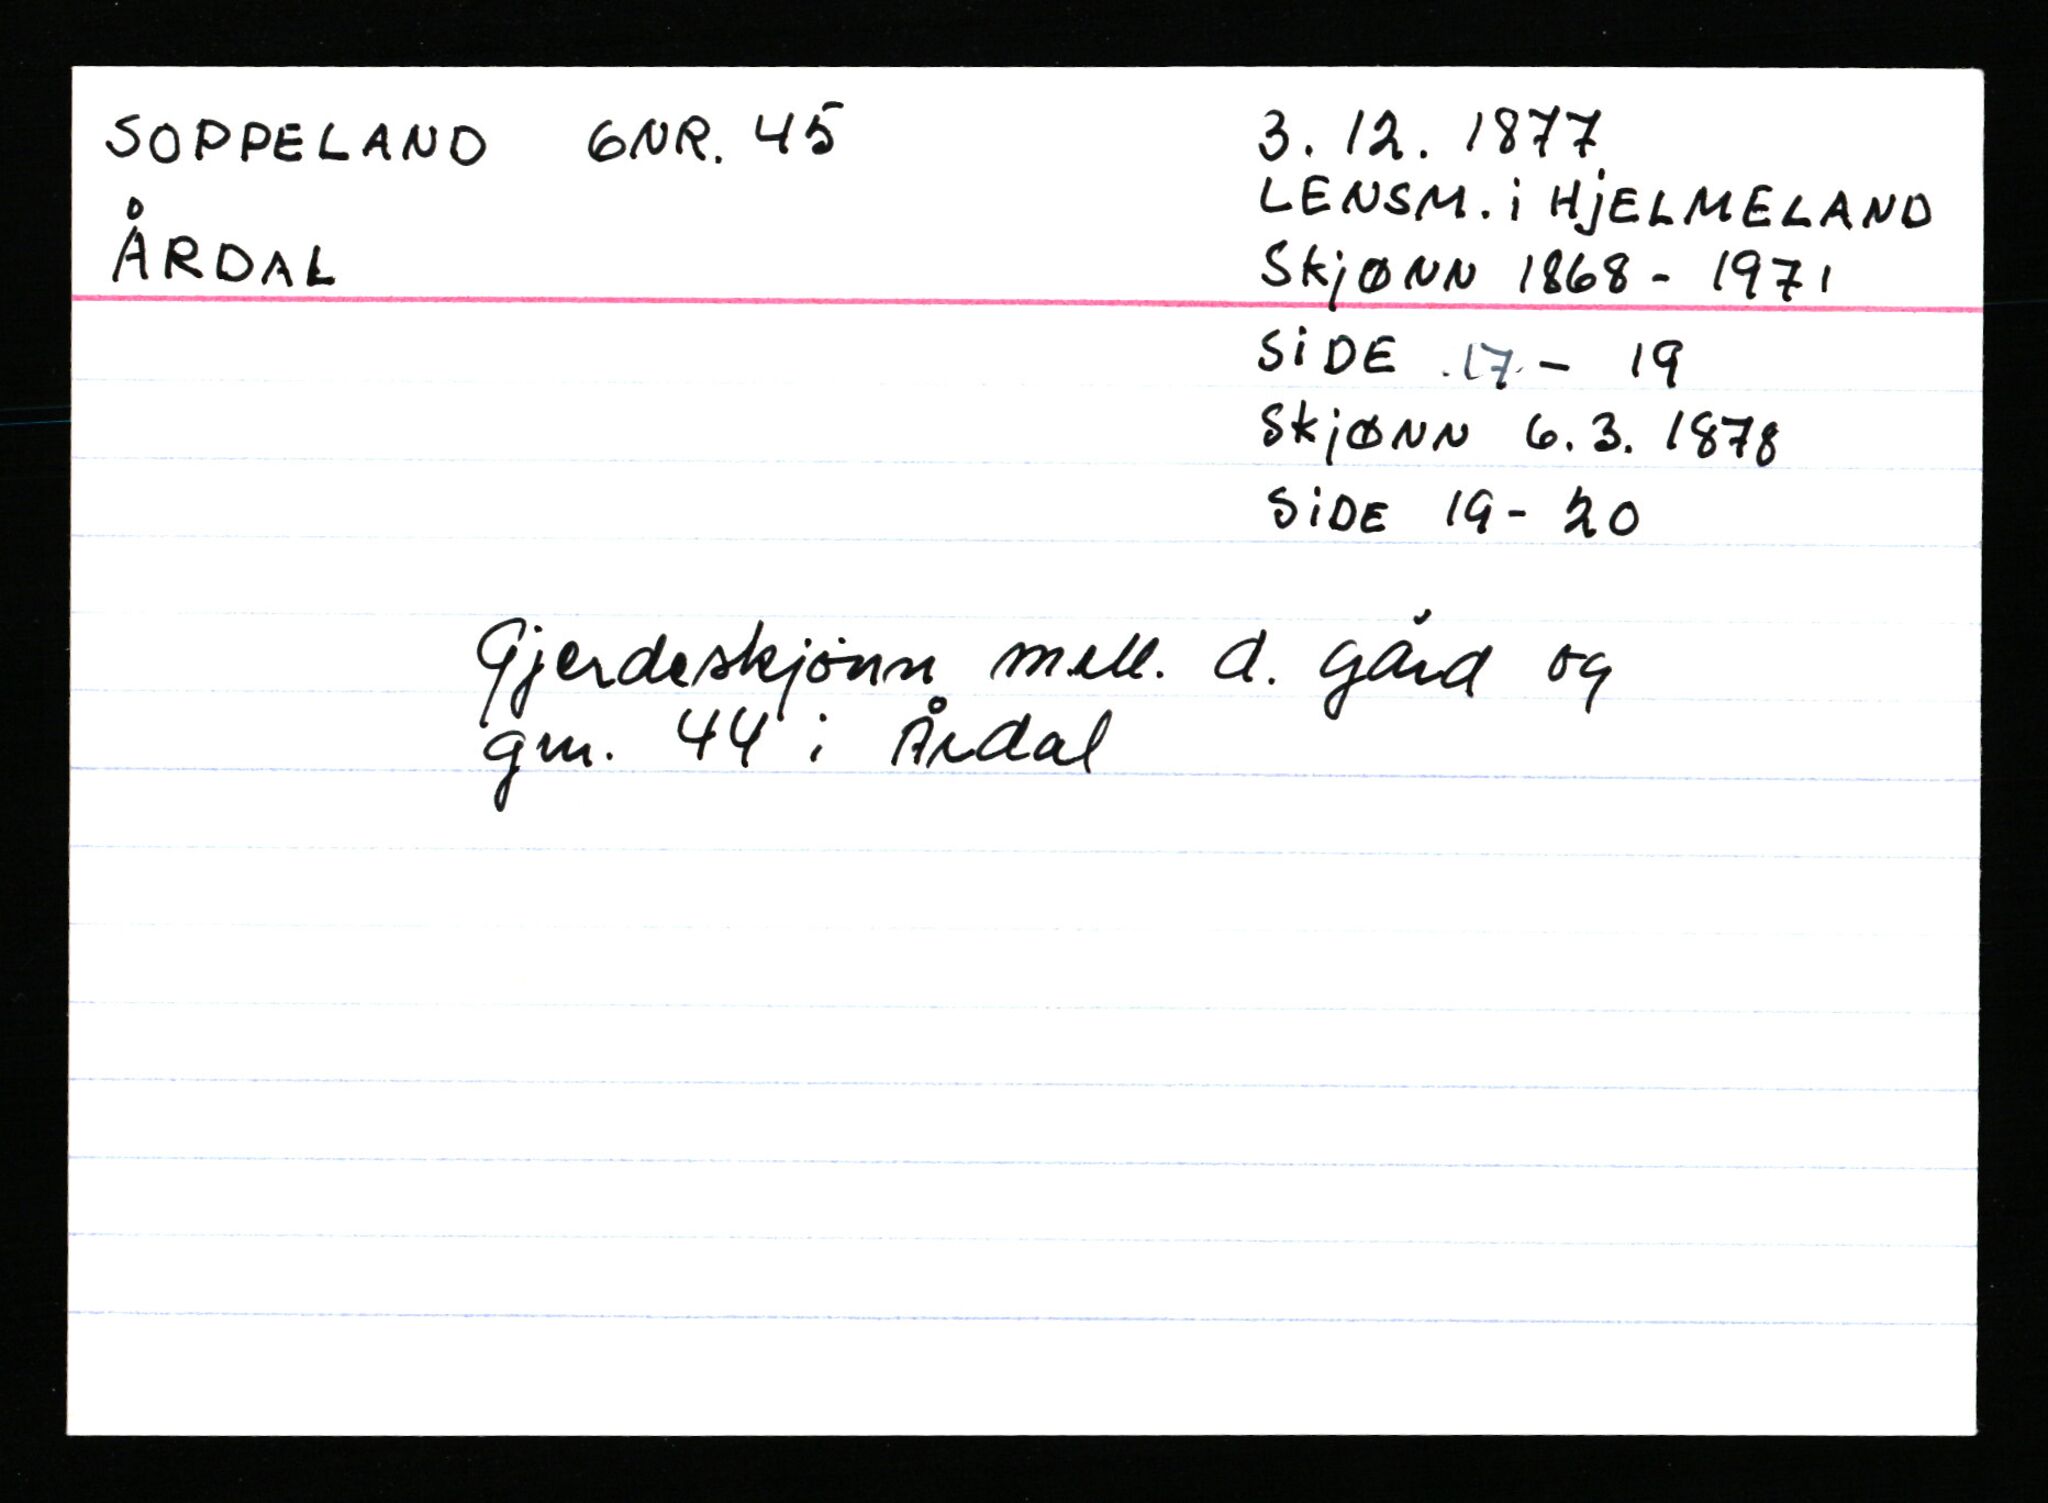 SOPPELAND GNR. 45
ÅRDAL
3. 12. 1877
LENSM. i HjELMELAND
SkjØNN 1868 - 1971
SiDE 17 - 19
SkjØNN 6. 3. 1878
SiDE 19 - 20
Gjerdeskjønn mell. d. gård og
gnr. 44 i Årdal